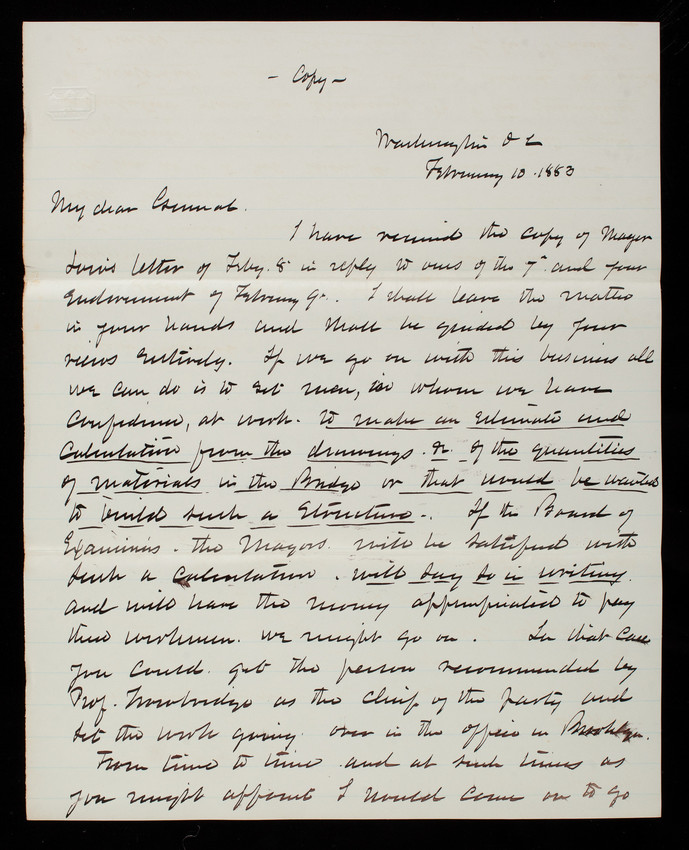 - Copy -
Washington D C
February 10. 1883
My dear General.
I have received the copy of Mayor
Low's letter of Feby. 8 in reply to ours of the 7" and your
Endorsement of February 9". I shall leave the matter
in your hands and shall be guided by your
views entirely. If we go on with this business all
we can do is to get men, in whom we have
Confidence, at work. to make an estimate and
Calculation from the drawings &c. of the quantities
of materials in the Bridge or that would be wanted
to build such a structure. If the Board of
Examiners. the Mayors will be satisfied with
such a Calculation. will say so in writing.
and will have the money appropriated to pay
these workmen. we might go on. In that case
you could get the person recommended by
Prof. Trowbridge as the chief of the party and
set the work going over in the office in Brooklyn.
From time to time and at such times as
you might appoint I would come on to go